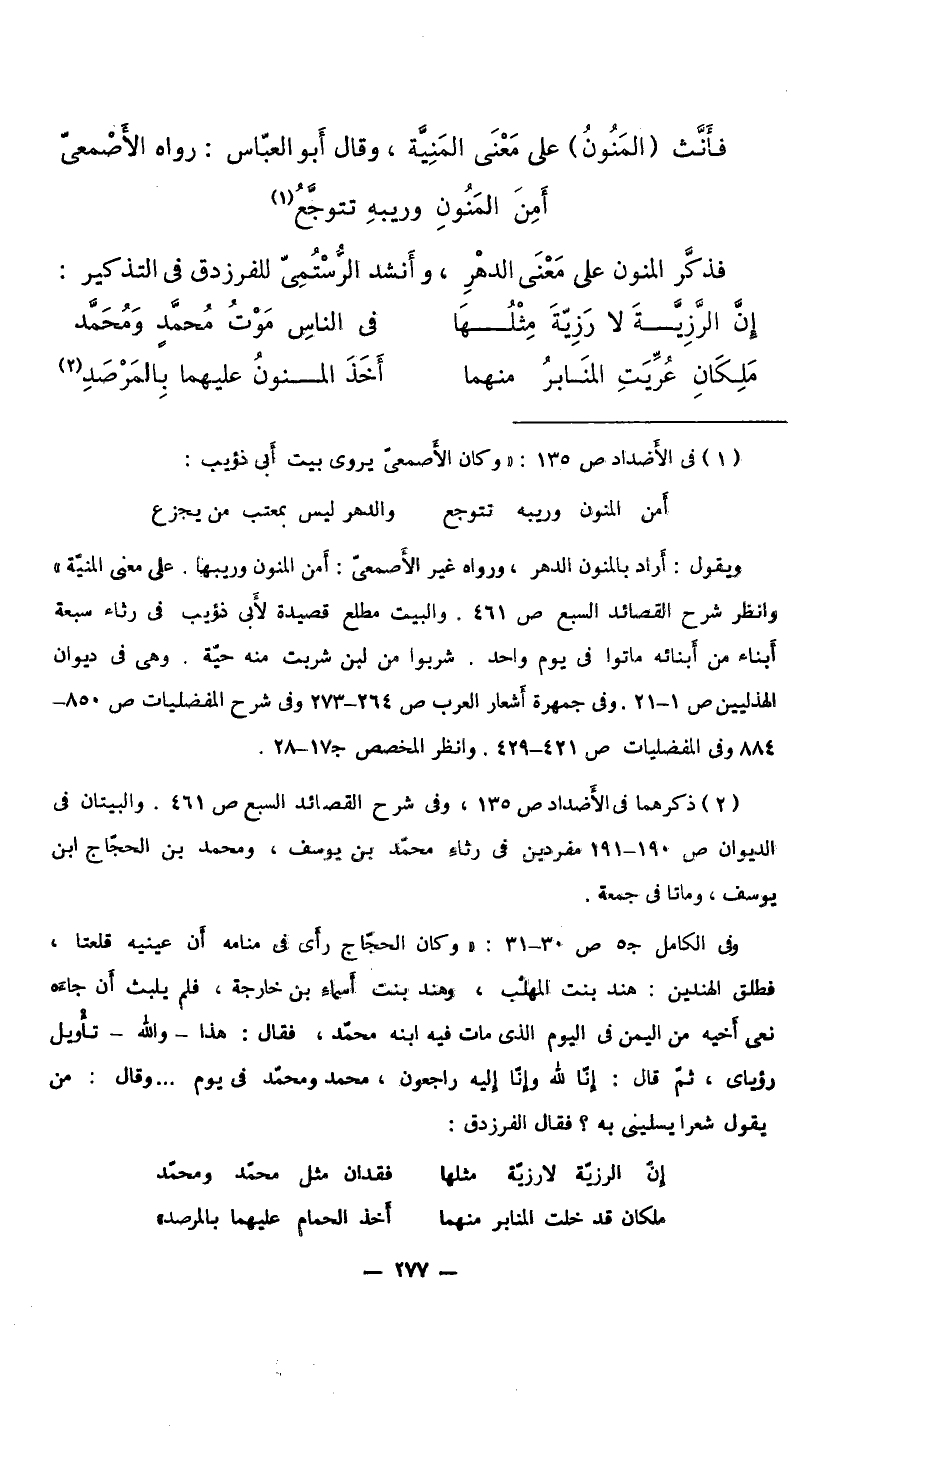 فأَنَّث (المَنُونُ) على مَعْنَى المَنِيَّة ، وقال أَبو العبّاس : رواه الأَصْمعىّ
أَمِنَ المَنُونِ وريبهِ تتوجَّعُ(١)
فذكَّر المنون على مَعْنَى الدهْرِ ، وأَنشد الرُّسْتُمِىّ للفرزدق فى التذكير :
إِنَّ الرَّزِيَّـــةَ لا رَزِيّةَ مِثْلُـــهَا فى الناسِ مَوْتُ مُحمَّدٍ وَمُحَمَّد
مَلِكَانِ عُرِّيَتِ المَنَـابرُ منهما أَخَذَ المـــنونُ عليهما بِالمَرْصَدِ(٢)
(١) فى الأَضداد ص ١٣٥ : «وكان الأَصمعىّ يروى بيت أَبى ذؤيب :
أَمن المنون وريبه تتوجع والدهر ليس بمعتب من يجزع
ويقول : أراد بالمنون الدهر ، ورواه غير الأَصمعىّ : أَمن المنون وريبها . على معنى المنيّة»
وانظر شرح القصائد السبع ص ٤٦١ . والبيت مطلع قصيدة لأَبى ذؤيب فى رثاء سبعة
أَبناء من أَبنائه ماتوا فى يوم واحد . شربوا من لبن شربت منه حيّة . وهى فى ديوان
الهذليين ص ١–٢١ . وفى جمهرة أَشعار العرب ص ٢٦٤–٢٧٣ وفى شرح المفضليات ص ٨٥٠–
٨٨٤ وفى المفضليات ص ٤٢١–٤٢٩ . وانظر المخصص ج١٧–٢٨ .
(٢) ذكرهما فى الأَضداد ص ١٣٥ ، وفى شرح القصائد السبع ص ٤٦١ . والبيتان فى
الديوان ص ١٩٠–١٩١ مفردين فى رثاء محمّد بن يوسف ، ومحمد بن الحجّاج ابن
يوسف ، وماتا فى جمعة .
وفى الكامل ج٥ ص ٣٠–٣١ : «وكان الحجّاج رأَى فى منامه أَن عينيه قلعتا ،
فطلق الهندين : هند بنت المهلّب ، وهند بنت أَسماء بن خارجة ، فلم يلبث أَن جاءَه
نعى أَخيه من اليمن فى اليوم الذى مات فيه ابنه محمّد ، فقال : هذا – والله – تأْويل
رؤياى ، ثمّ قال : إنّا لله وإنّا إليه راجعون ، محمد ومحمّد فى يوم ...وقال : من
يقول شعرا يسلينى به ؟ فقال الفرزدق :
إنّ الرزيّة لارزيّة مثلها فقدان مثل محمّد ومحمّد
ملكان قد خلت المنابر منهما أَخذ الحمام عليهما بالمرصد»
— ٢٧٧ —